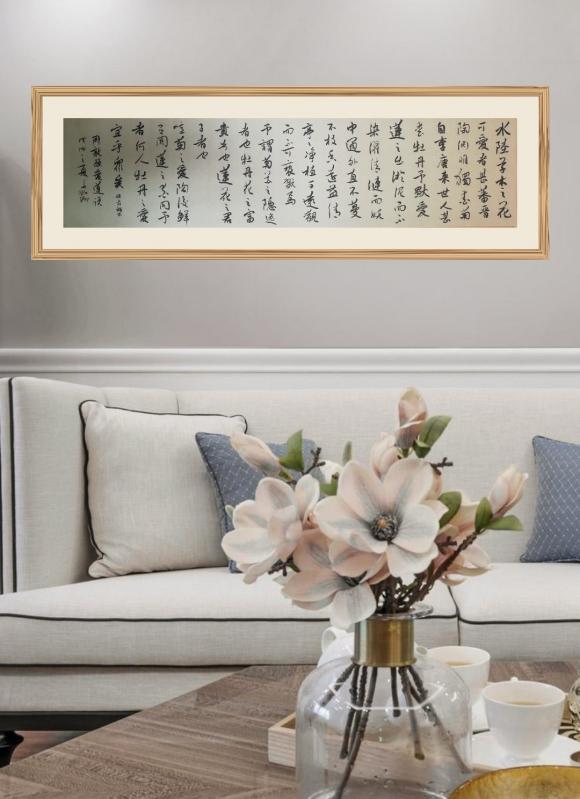 水陸草木之花
可愛者甚蕃晋
陶淵明獨愛菊
自李唐来世人甚
愛牡丹予獨愛
蓮之出淤泥而不
染濯清漣而妖
中通外直不蔓
不枝香遠益清
亭亭净植可遠觀
而不可褻翫焉
予謂菊花之隱逸
者也牡丹花之富
貴者也蓮花之君
子者也
噫菊之愛陶後鮮
有聞蓮之愛同予
者何人牡丹之愛
宜乎衆矣
周敦頤愛蓮説
之夏